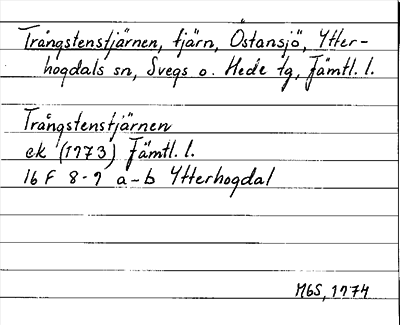 Trångstenstjärnen, tjärn, Östansjö, Ytter-
hogdals sn, Svegs o. Hede tg, Jämtl. l.
Trångstenstjärnen
ek (1973) Jämtl. l.
16 F 8-9 a-b Ytterhogdal
MbS, 1974